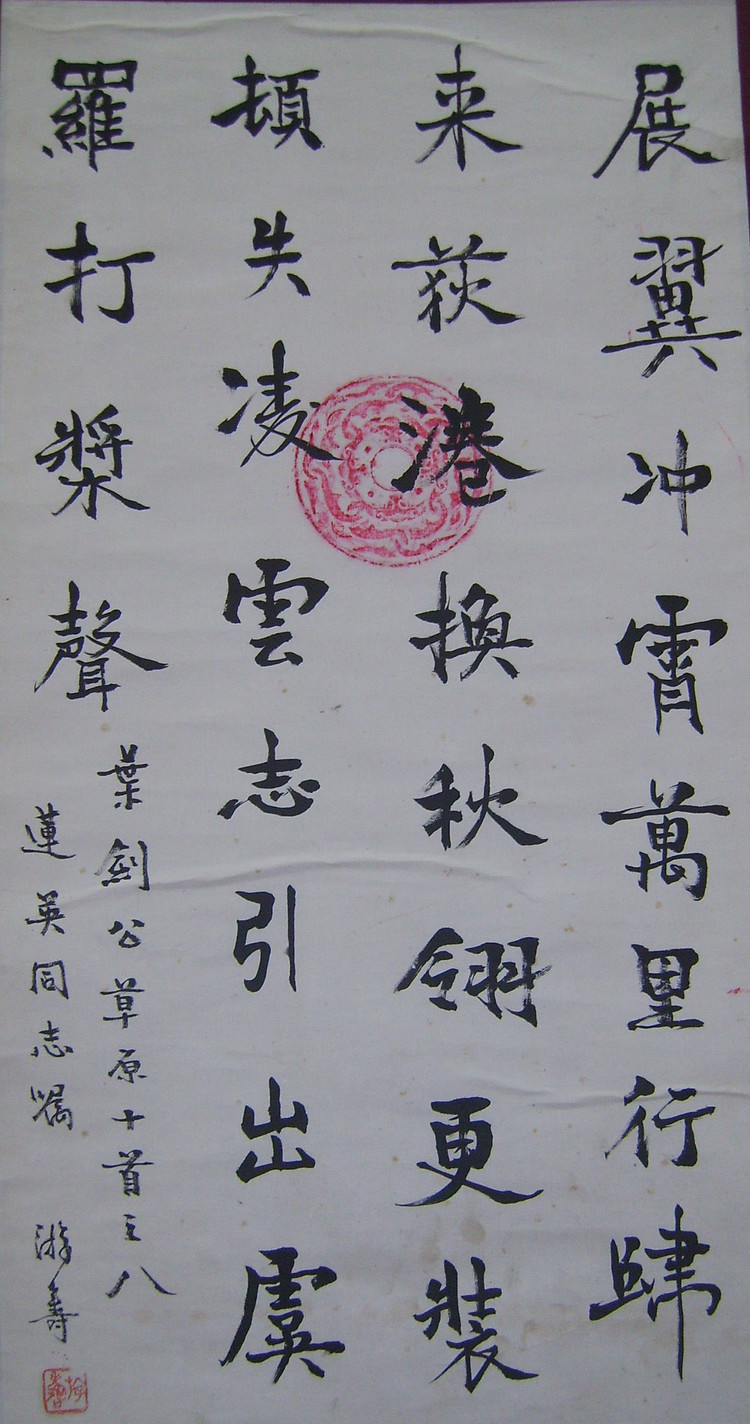 展翼冲霄萬里行肆
来荻港換秋翎更裝
頓失凌雲志引出虞
羅打槳聲
葉劍公草原十首之八
蓮英同志嘱 游壽